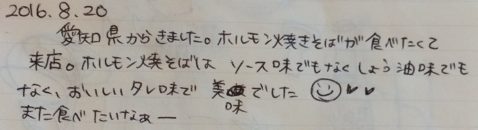 2016.8.20
愛知県からきました。ホルモン焼きそばが食べたくて
来店。ホルモン焼そばは ソース味でもなくしょう油味でも
なく、おいしいタレ味で 美味でした
また食べたいなぁー